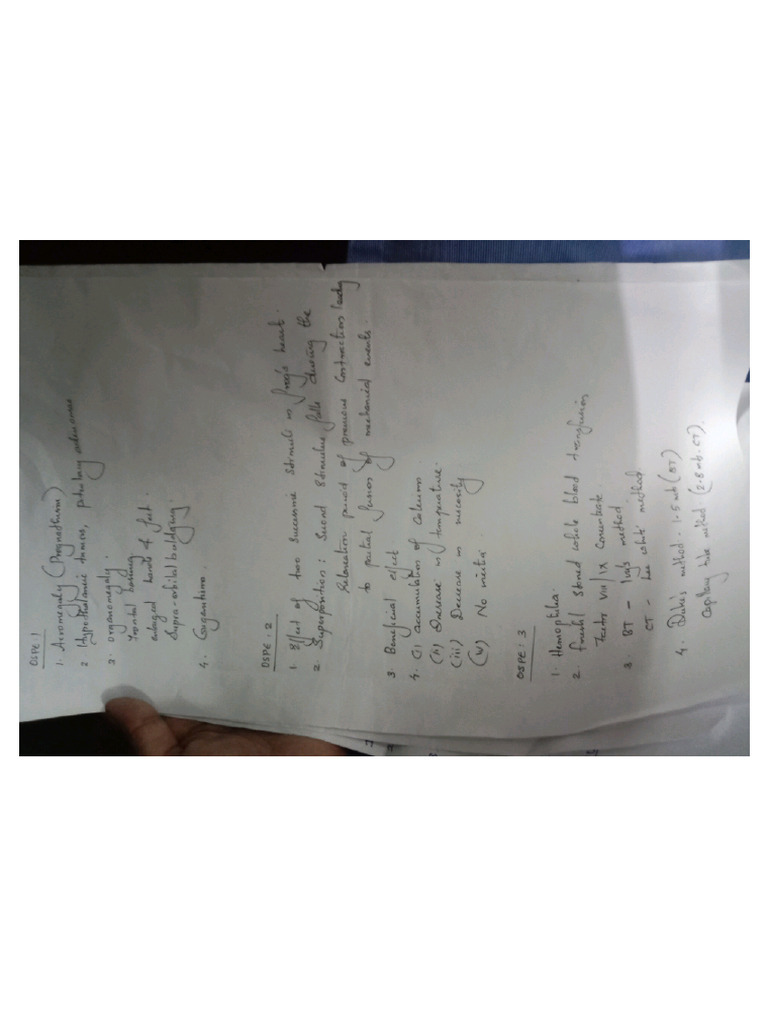 OSPE-1
1. Acromegaly (Prognathism)
2. Hypothalamic tumor, pituitary adenomas
3. organomegaly.
Frontal bossing
enlarged hands & feet.
Supra-orbital buldging.
4. Gigantism.
OSPE: 2
1. Effect of two successive stimuli in frog's heart.
2. Superposition: Second stimulus falls during the
Relaxation period of previous contraction leading
to partial fusion of mechanical events.
3 Beneficial effect
4. (i) accumulation of calcium.
(ii) Increase in temperature.
(iii) Decrease in viscosity
(iv) No inertia.
OSPE: 3
1. Hemophilia.
2. Fresh/ stored whole blood transfusion
Factor VIII/IX Concentrate.
3. BT - Ivy's method
CT - Lee white method
4. Duke's method - 1-5 mts (BT)
Capillary tube method (2-8 mts. CT).